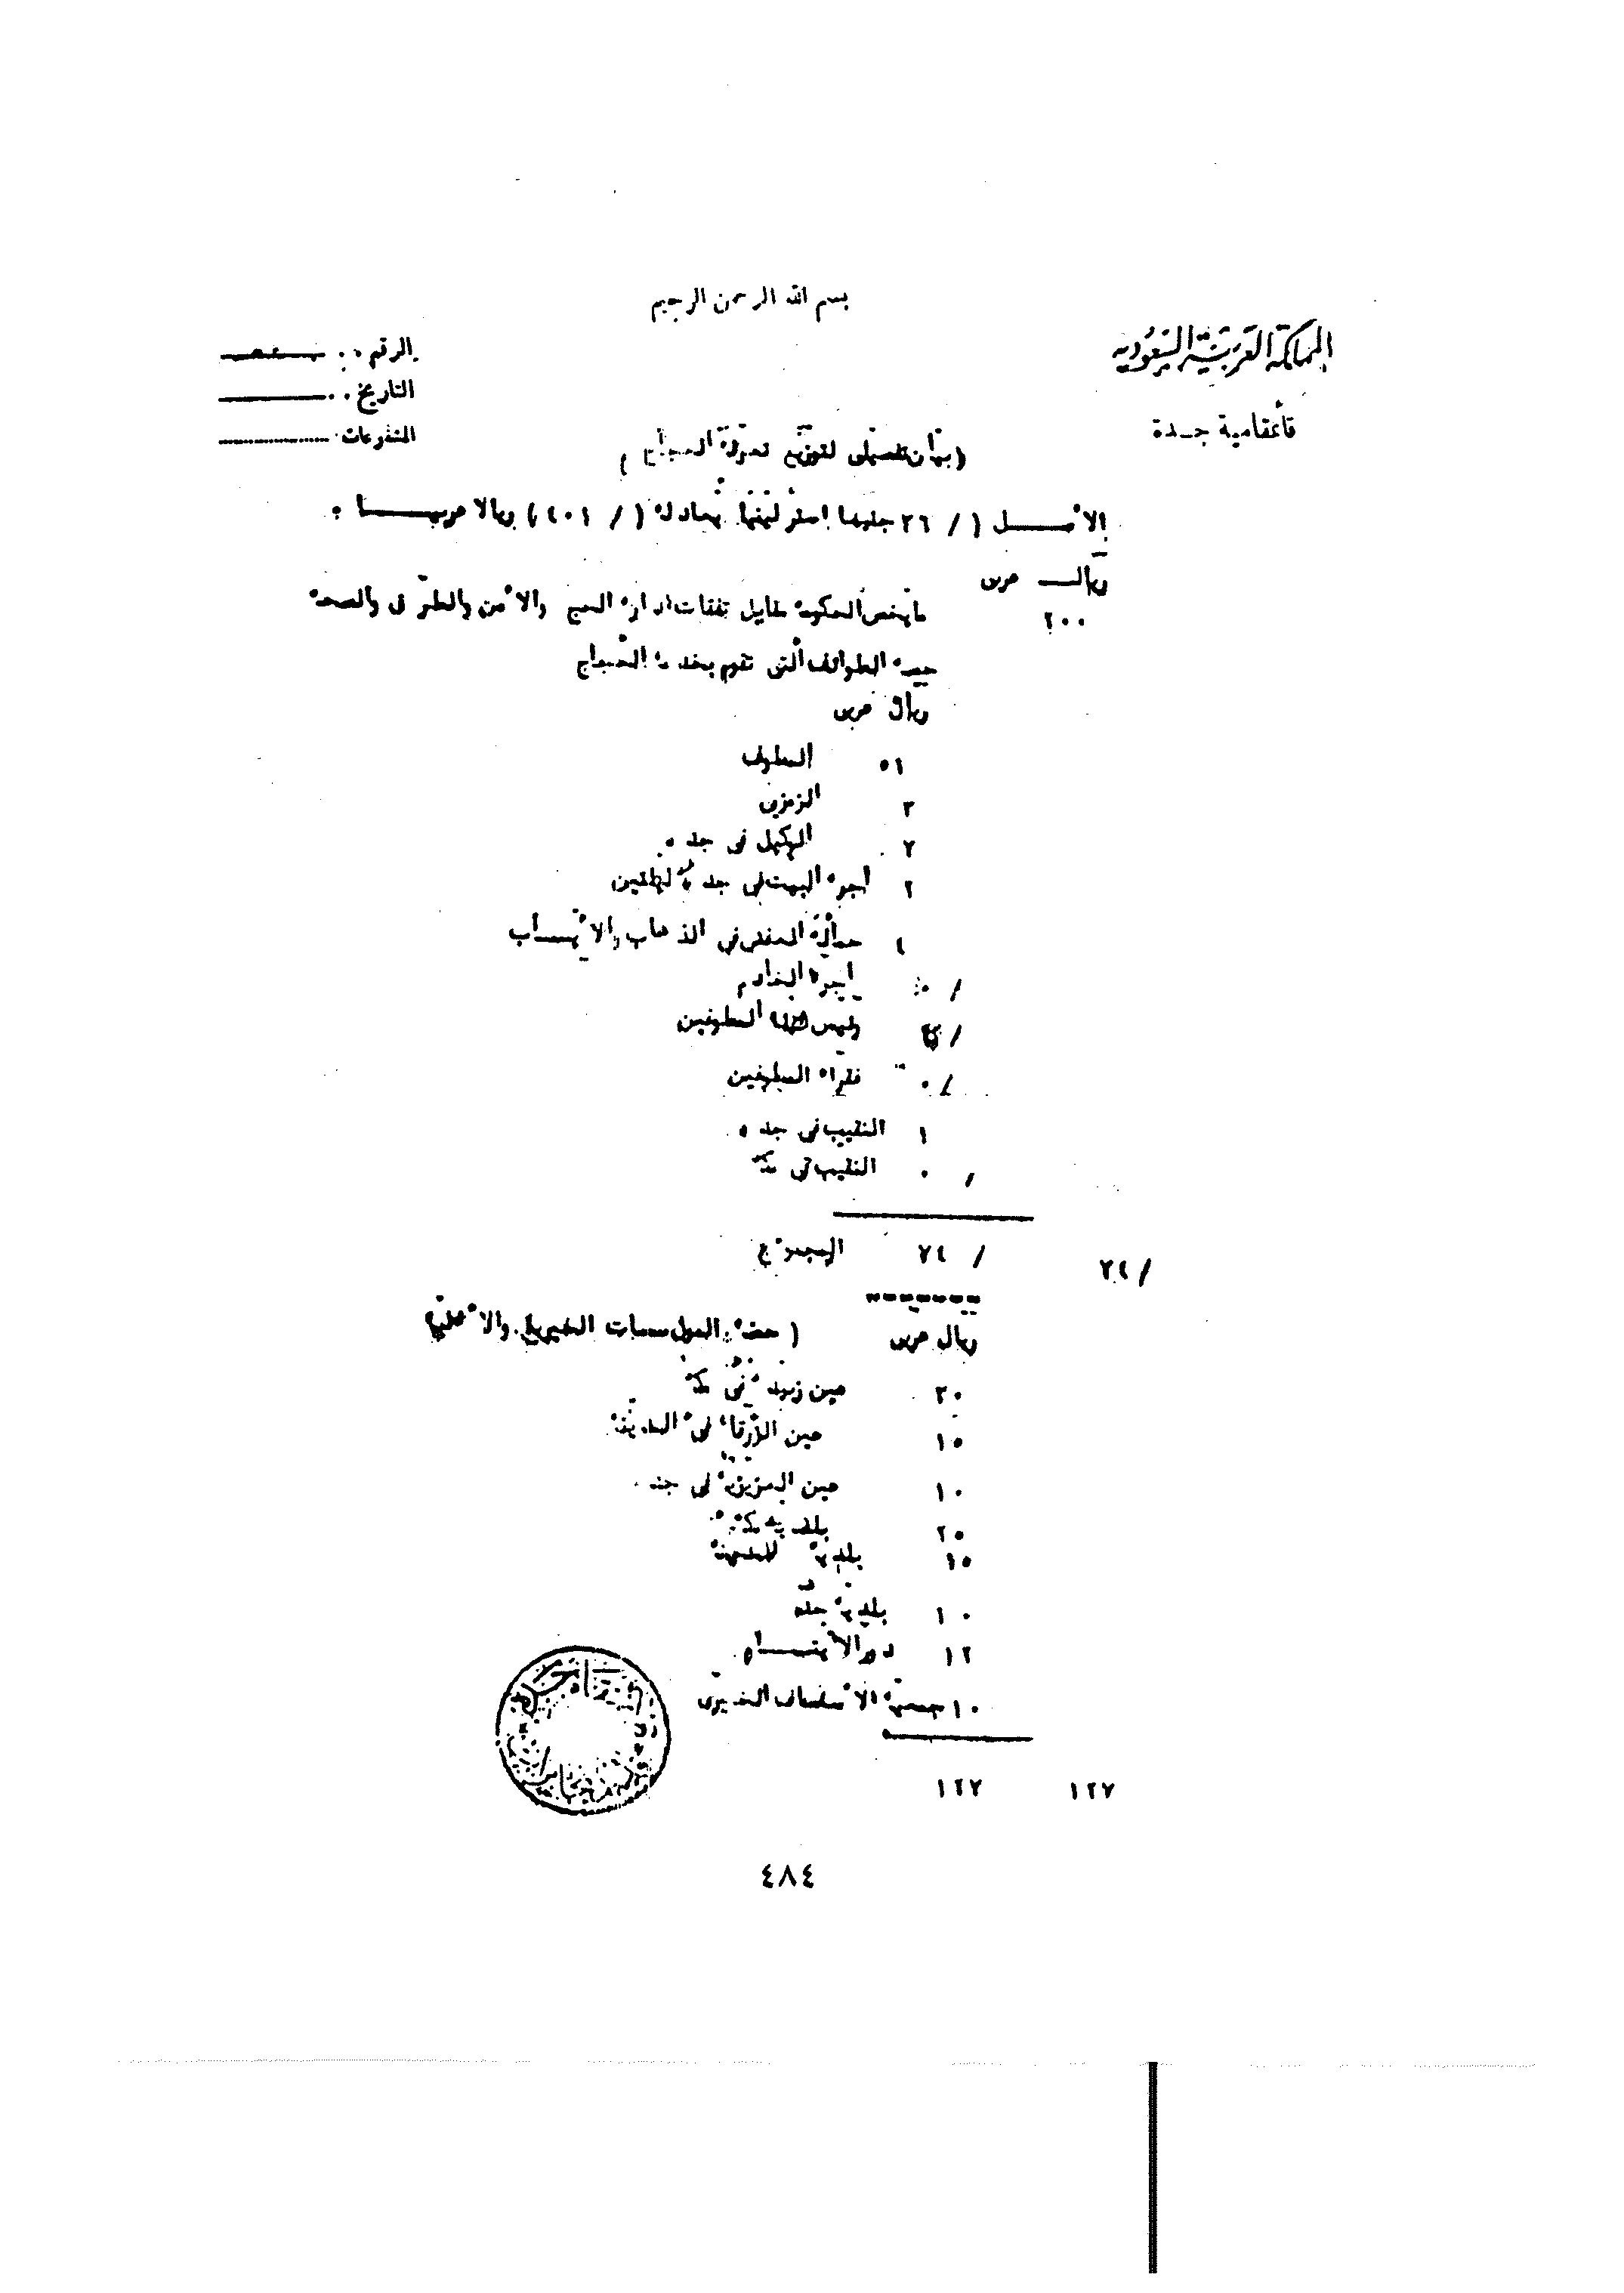 بسم الله الرحمن الرحيم
المملكة العربية السعودية
قائمقامية جـدة
الرقم
التاريخ
المشفوعات
(بيان تفصيلى لتوزيع تعرفة الحجاج)
الأصــل ( / ٢٦ جنيها استرلينيا يعادله ( / ٤٠١) ريالا عربيــا :
ريالــ عربى
٢٠٠ مايخص الحكومه مقابل نفقات اداره الحج والأمن والطرق والصحه
حصه الطوائف التى تقوم بخدمة الحجاج
ريال عربى
٥١ المطوف
٣ الزمزمى
٧ الوكيل فى جده
٢ أجره البيت فى جده
٤ حمالة العفش فى الذهاب والايــاب
/ ٠ اجرة الخادم
/ رئيس المطوفين
/ ٠ فقراء المطوفين
١ النقيب فى جده
/ ٠ النقيب فى مكة
/ ٧٤ المجموع /٧٤
ريال عربى ( حصة المؤسسات الخيريه والأهليه
٣٠ عين زبيدة فى مكة
١٥ عين الزرقاء فى المدينة
١٠ عين العزيزية فى جده
٢٥ بلدية مكة
١٥ بلدية المدينة
١٠ بلدية جده
١٢ دور الأيتــام
١٠ جمعية الأسعاف الخيرى
١٢٧ ١٢٧
٤٨٤